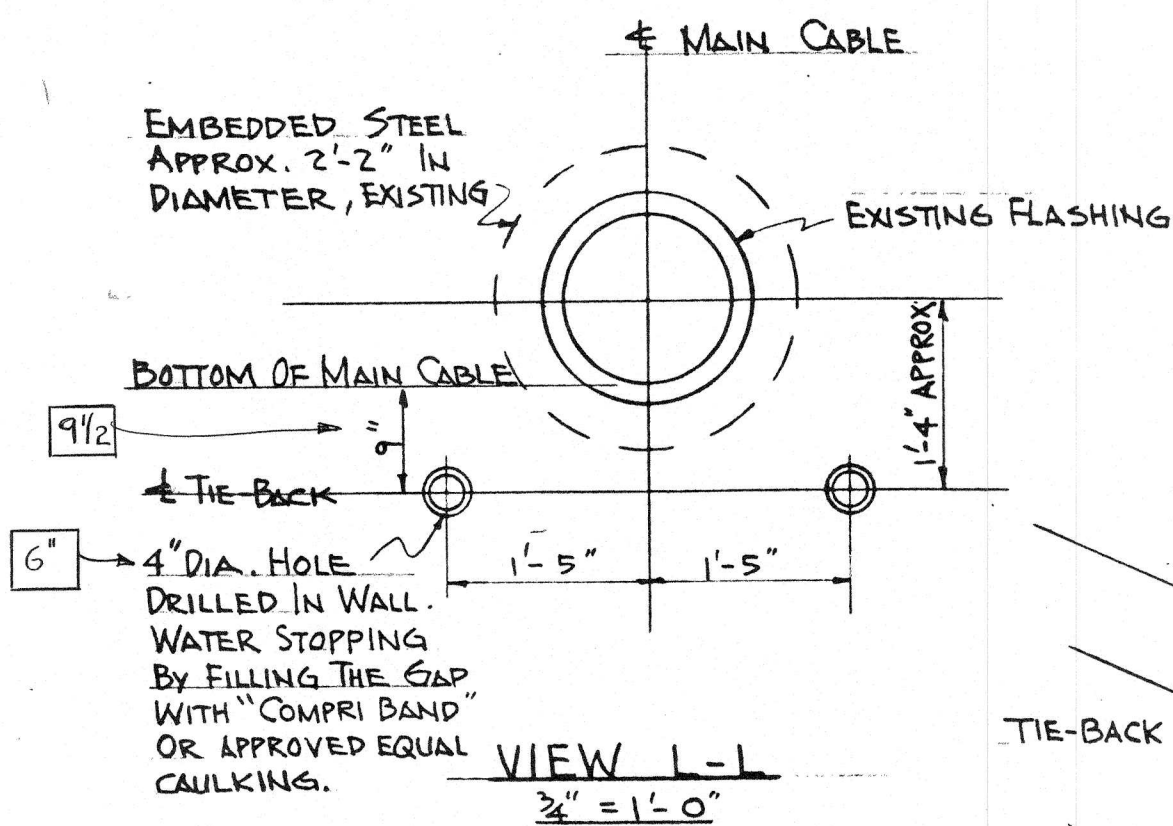 ℄ MAIN CABLE
EMBEDDED STEEL
APPROX. 2'-2" IN
DIAMETER, EXISTING
EXISTING FLASHING
BOTTOM OF MAIN CABLE
1'-4" APPROX
9 1/2
9"
℄ TIE-BACK
6"
4" DIA. HOLE
DRILLED IN WALL.
WATER STOPPING
BY FILLING THE GAP
WITH "COMPRI BAND"
OR APPROVED EQUAL
CAULKING.
1'-5"
1'-5"
TIE-BACK
VIEW L-L
3/4" = 1'-0"